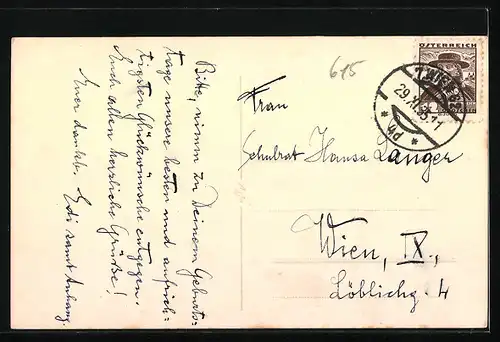 Bitte, nimm zu Deinem Geburts-
tage unsere besten und aufrich-
tigsten Glückwünsche entgegen.
Auch allen herzliche Grüße!
Euer dankb. Edi samt Anhang.
645
ÖSTERREICH
1 WIEN
29.XI.35.17
* 4d *
Frau
Schulrat Hansa Langer
Wien, IX.,
Löblichg. 4